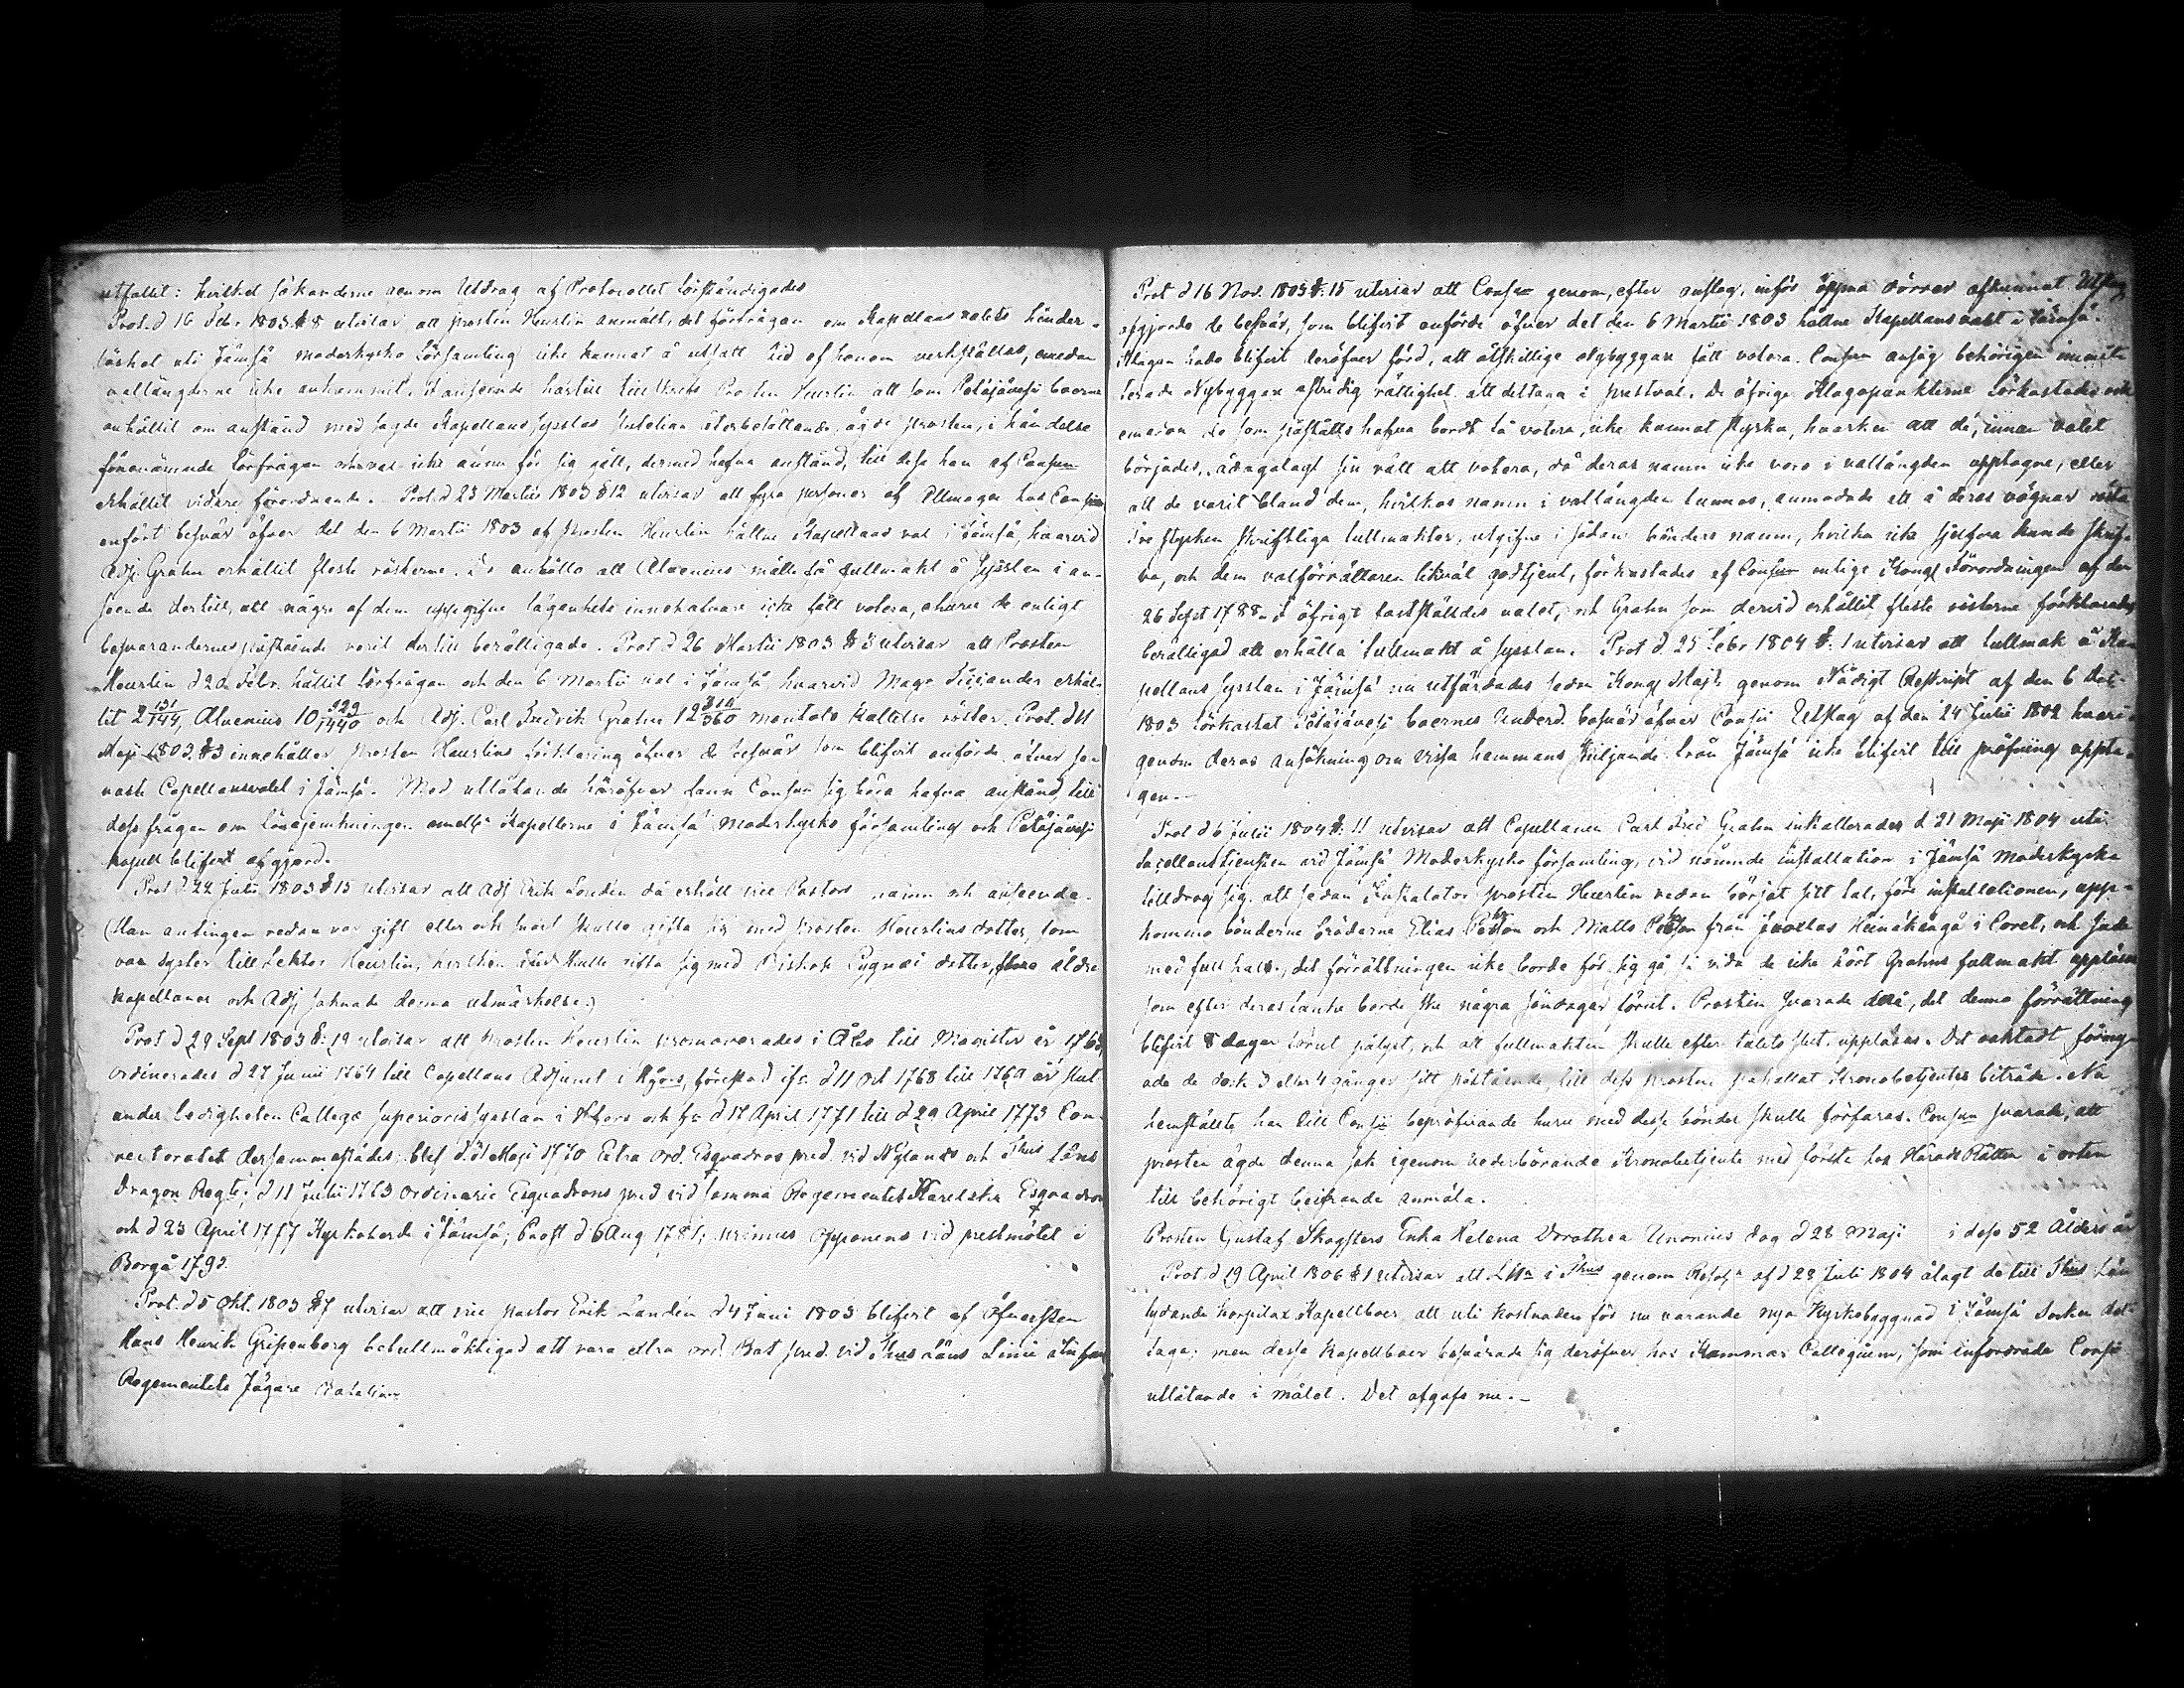 utfallit: hvilket sökanderne genom Utdrag af Protocollet förständigades
Prot. d 16 Febr. 1803 § 8 utvisar att Prosten Heurlin anmält, det förfrågan om Kapellans valets hinder-
löshet uti Jämsä moderkyrko församling icke kunnat å utsatt tid af honom verkställas, emedan
vallängderne icke ankommit. I anseende härtill tillskrefs Prosten Heurlin att som Petäjävesi boerne
anhållit om anstånd med sagde Kapellans sysslas återbesättande, ägde Prosten, i händelse
förenämnde förfrågan och val icke ännu för sig gått, dermed hafva anstånd, till dess han af Consm
erhållit vidare förordnande. Prot. d 23 Martii 1803 § 12 utvisar att fyra personer af Allmogen hos Consm
anfört besvär öfver det den 6 Martii 1803 af Prosten Heurlin hållne Kapellans val i Jämsä, hvarvid
Adj. Grahn erhållit fleste rösterne. De anhålla att Alcenius måtte få fullmakt å Sysslan i an-
seende dertill, att några af dem uppgifne lägenhets innehafvare icke fått votera, churu de enligt
besvärandernes påstående varit dertill berättigade. Prot. d 26 Martii 1803 § 3 utvisar att Prosten
Heurlin d 20 Febr. hållit förfrågan och den 6 Martii val i Jämsä, hvarvid Mag. erhål-
lit 2 131/144, Alcenius 10 929/1440 och Adj. Carl Fredrik Grahn 12 /360 mantals kallelse röster. Prot. d 11
Maji 1803 § 3 innehåller Prosten Heurlins förklaring öfver de besvär som blifvit anförde öfver se-
naste Capellansvalet i Jämsä. Med utlåtande häröfver fann Consm sig böra hafva anstånd, till
dess frågan om lönejemkningen emellan Kapellerne i Jämsä Moderkyrko församling och Petäjävesi
kapell blifvit afgjord.
Prot. d 22 Juni 1803 § 15 utvisar att Adj Erik Londén då erhöll vice Pastors namn och anseende.
(Han antingen redan var gift eller och snart skulle gifta sig med Prosten Heurlins dotter, som
var syster till Lektor Heurlin, hvilken skulle gifta sig med Biskop Cygnæi dotter, flere äldre
kapellaner och Adj saknade denna utmärkelse.)
Prot d 29 Sept 1803 §: 19 utvisar att Prosten Heurlin promoverades i Åbo till Magister år 176,
ordinerades d 27 Junii 1764 till Capellans Adjunct i, förestod ifr. d 11 Oct 1768 till 1769 års slut
under ledigheten Collegæ Superioris sysslan i Hfors och fr. d 17 April 1771 till d 29 April 1773 Con-
rectoratet dersammestädes; blef d. 31 Maji 1770 Extra ord. Esquadrons pred. vid Nylands och Thus Läns
Dragon Regte; d 11 Julii 1773 ordinarie Esquadrons pred vid samma Regementets Karelska Esquadron
och d 23 April 1777 Kyrkoherde i Jämsä; Prost d 6 Aug 1781; primus Opponens vid prestmötet i
Borgå 1793.
Prot. d 5 Okt. 1803 § 7 utvisar att vice pastor Erik Londén d 4 Juni 1803 blifvit af Öfversten
Hans Henrik Gripenberg befullmäktigad att vara extra ord. Bat. pred. vid Thus Läns
Regementets Jägare Bataljon.
Prot d 16 Nov. 1803 §: 15 utvisar att Consm genom, efter anslag, inför öppna dörrar afkunnat Utslag
afgjorde de besvär, som blifvit anförde öfver det den 6 Martii 1803 hållne Kapellans valet i Jämsä.
Klagan hade blifvit deröfver förd, att åtskillige Nybyggare fått votera. Consm ansåg behörigen immit-
terade Nybyggare rättighet att deltaga i prestval. De öfrige Klagopunkterne förkastades och
emedan de som påståtts hafva bordt få votera, icke kunnat styrka, hvarken att de, innan valet
börjades, ådagalagt sin rätt att votera, då deras namn icke voro i vallängden upptagne, eller
att de varit bland dem, hvilkas namn i vallängden funnos, anmodade att å deras vägnar rösta
Tre stycken skriftliga fullmakter, utgifne i sådane bönders namn, hvilka icke sjelfva kunde skrif-
va, och dem valförrättaren likväl godkjent, förkastades af Consm enlige Kongl Förordningen af den
26 Sept 1788. I öfrigt fastställdes valet, och Grahn som dervid erhållit fleste rösterne förklarades
berättigad att erhålla fullmakt å sysslan. Prot d 25 Febr 1804 §: 1 utvisar att fullmakt å Ka-
pellans sysslan i Jämsä nu utfärdades sedan Kongl Majt genom Nådigt Reskript af den 6 Oct
1803 förkastat Petäjävesi boernes Underd. besvär öfver Consii Utslag af den 24 Julii 1802 hvari-
genom deras ansökning om vissa hemmans skiljande från Jämsä icke blifvit till pröfning uppta-
gen.—
Prot d 6 Julii 1804 §: 11 utvisar att Capellanen Carl Fred Grahn installerades d 21 Maji 1804 uti
Sacellanstjensten vid Jämsä Moderkyrko församling, vid nämnde installation i Jämsä moderkyrka
tilldrog sig, att sedan Installator Prosten Heurlin redan börjat sitt tal, före installationen, upp-
kommo bönderne bröderne Elias och Matts från i koret, och sade
med full hals, det förrättningen icke borde för sig gå, så vida de icke hört Grahns fullmakt uppläsas
som efter deras tanke borde ske några söndagar förut. Prosten svarade, det denna förrättning
blifvit 8 dagar förut pålyst, och att fullmakten skulle efter talets slut uppläsas. Det oaktadt förny-
ade de dock 3 eller 4 gånger sitt påstående, till dess Prosten påkallat Kronobetjentes biträde. Nu
hemställte han till Consii bepröfvande huru med desse bönder skulle förfaras. Consm svarade, att
prosten ägde denna sak igenom vederbörande Kronobetjente med första hos Härads Rätten i orten
till behörigt beifrande anmäla.
Prosten Gustaf Skogsters Enka Helena Dorothea Unonius dog d 28 Maji i dess 52 Ålders år
Prot. d 19 April 1806 § 1 utvisar att i Thus genom af d 28 Juli 1804 ålagt de till Thus Län
lydande Korpilax Kapellboer att uti kostnaden för nu varande nya Kyrkobyggnad i Jämsä Socken del-
taga; men desse Kapellboer besvärade sig deröfver hos Kammar Collegium, som infordrade Consii
utlåtande i målet. Det afgafs nu.—